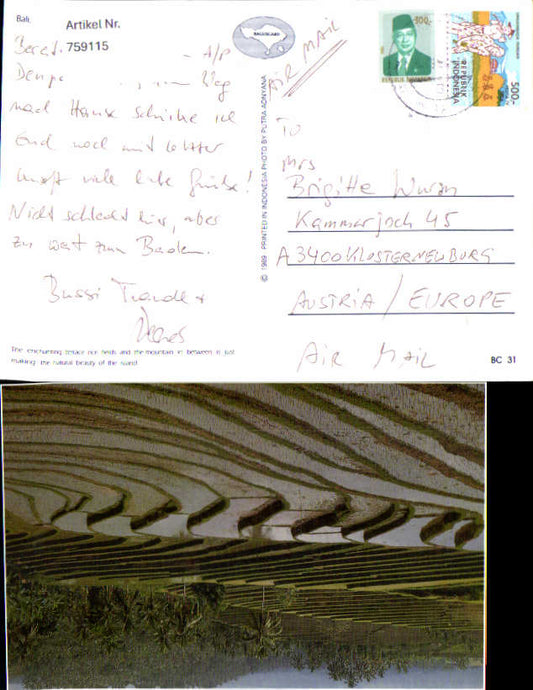 Bali,
Artikel Nr.
759115
Bereits
A/P
Weg
nach Hause schicke ich
Euch noch mit letzter
Kraft viele liebe Grüße!
Nicht schlecht hier, aber
zu weit zum Baden.
Bussi
The enchanting terrace rice fields and the mountain in between is just
making the natural beauty of the island
BALI ISLAND
© 1989 PRINTED IN INDONESIA PHOTO BY PUTRA ADNYANA
AIR MAIL
300,-
REPUBLIK INDONESIA
REPUBLIK
INDONESIA
500,-
To
Mrs
Brigitte
Kammerjoch 45
A 3400 KLOSTERNEUBURG
AUSTRIA / EUROPE
AIR MAIL
BC 31